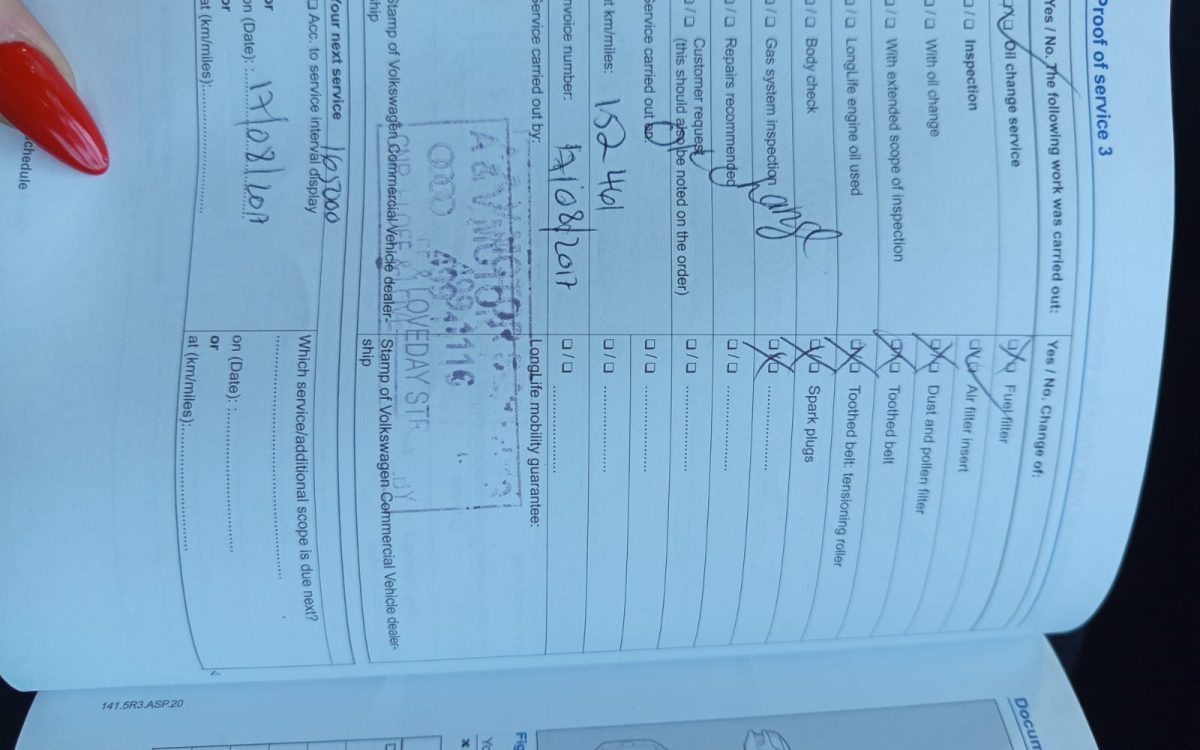 Proof of service 3
Yes / No. The following work was carried out:
Oil change service
Inspection
With oil change
With extended scope of inspection
LongLife engine oil used
Body check
Gas system inspection
Repairs recommended
Customer request
(this should also be noted on the order)
Service carried out
at km/miles: 152 461
Invoice number:
17/08/2017
Service carried out by:
Stamp of Volkswagen Commercial Vehicle dealer-
ship
Your next service 165000
Acc. to service interval display
or
on (Date): 17/08/2017
or
at (km/miles):
Yes / No. Change of:
Fuel filter
Air filter insert
Dust and pollen filter
Toothed belt
Toothed belt: tensioning roller
Spark plugs
LongLife mobility guarantee:
LOVEDAY STR
Stamp of Volkswagen Commercial Vehicle dealer-
ship
Which service/additional scope is due next?
on (Date):
or
at (km/miles):
chedule
141.5R3.ASP.20
Docum
Fig